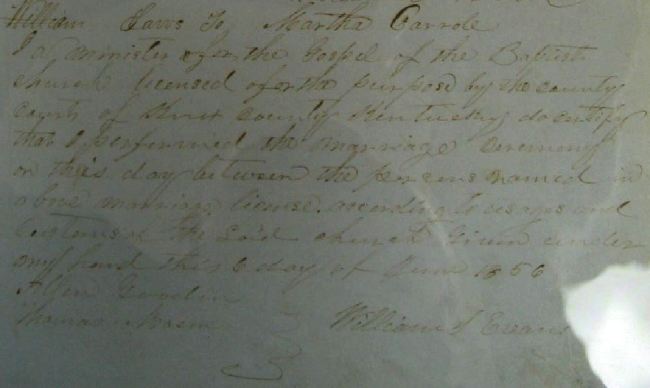 William to Martha Carrole
I a minister of the Gospel of the Baptist
church licensed for the purpose by the county
court of County Kentucky do certify
that I performed the marriage ceremony
on this day between the persons named in
above marriage license according to usages and
customs of the said church Given under
my hand this 6 day of June 1856
Allen
Thomas
William